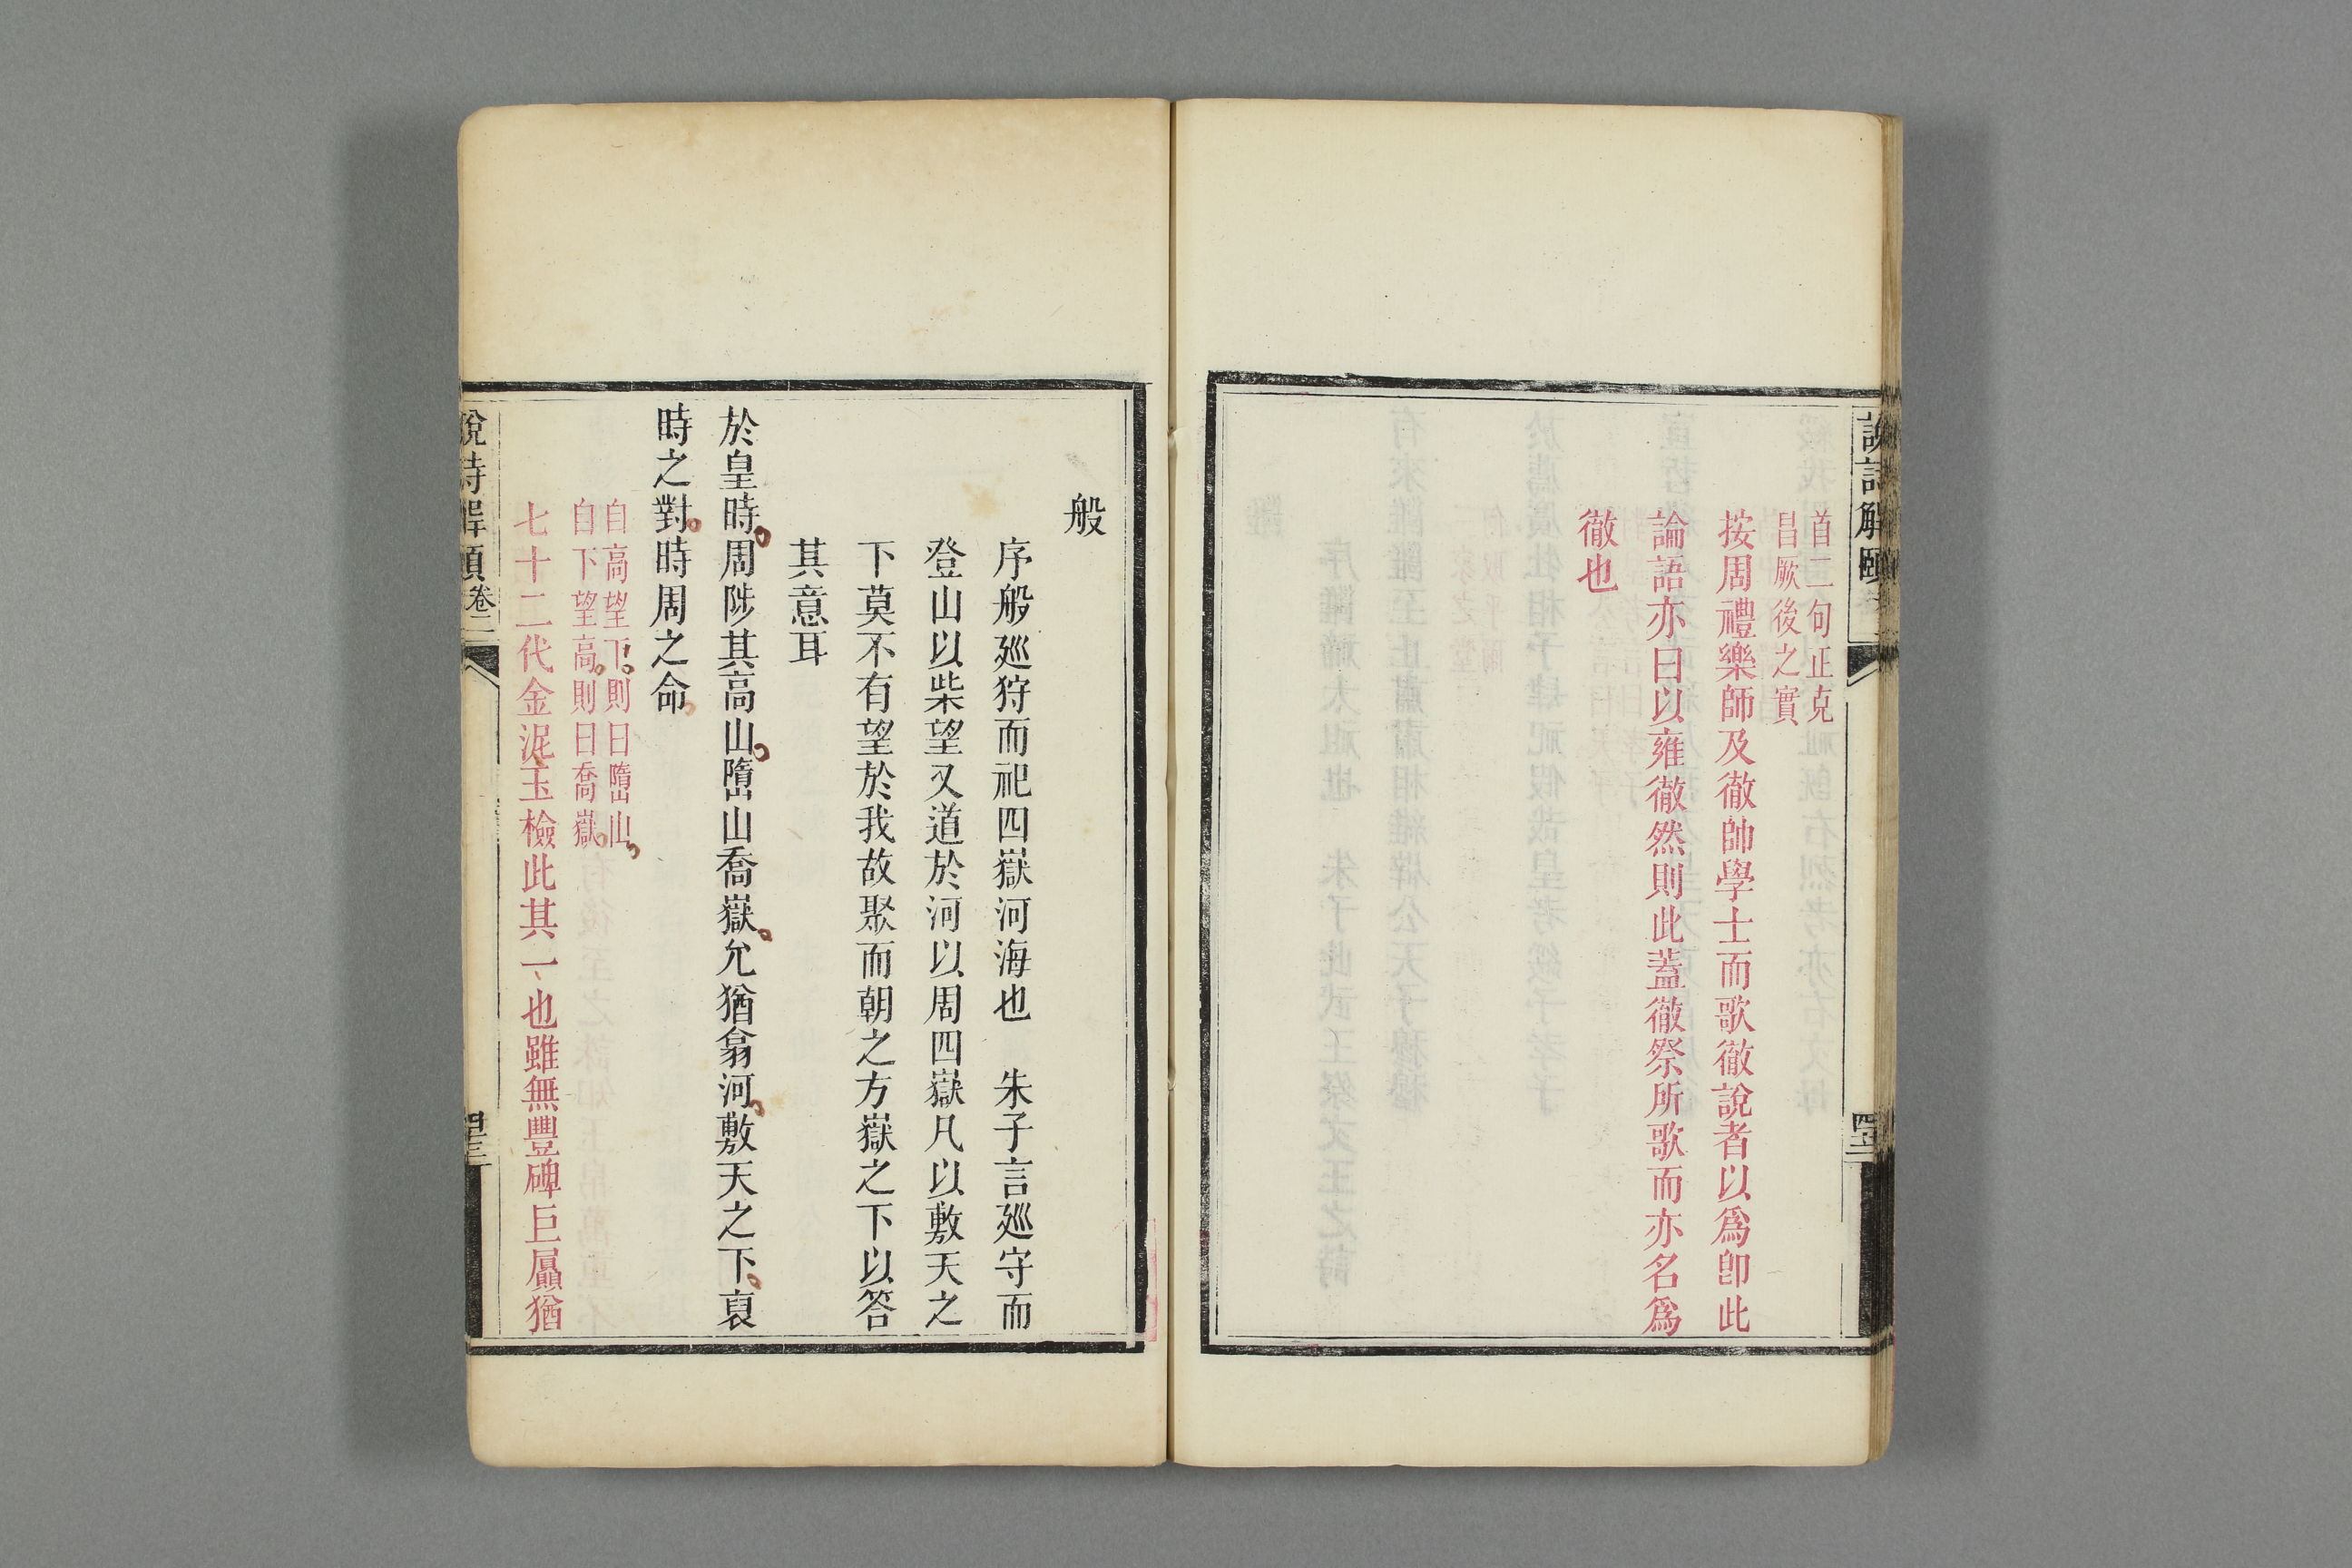 說詩解頤
首二句正克
昌厥後之實
按周禮樂師及徹帥學士而歌徹說者以爲卽此
論語亦曰以雍徹然則此蓋徹祭所歌而亦名爲
徹也
般
序般廵狩而祀四嶽河海也　朱子言廵守而
登山以柴望又道於河以周四嶽凡以敷天之
下莫不有望於我故聚而朝之方嶽之下以答
其意耳
於皇時周陟其高山嶞山喬嶽允猶翕河敷天之下裒
時之對時周之命
自高望下則曰嶞山
自下望高則曰喬嶽
七十二代金泥玉檢此其一也雖無豐碑巨贔猶
說詩解頤 卷二